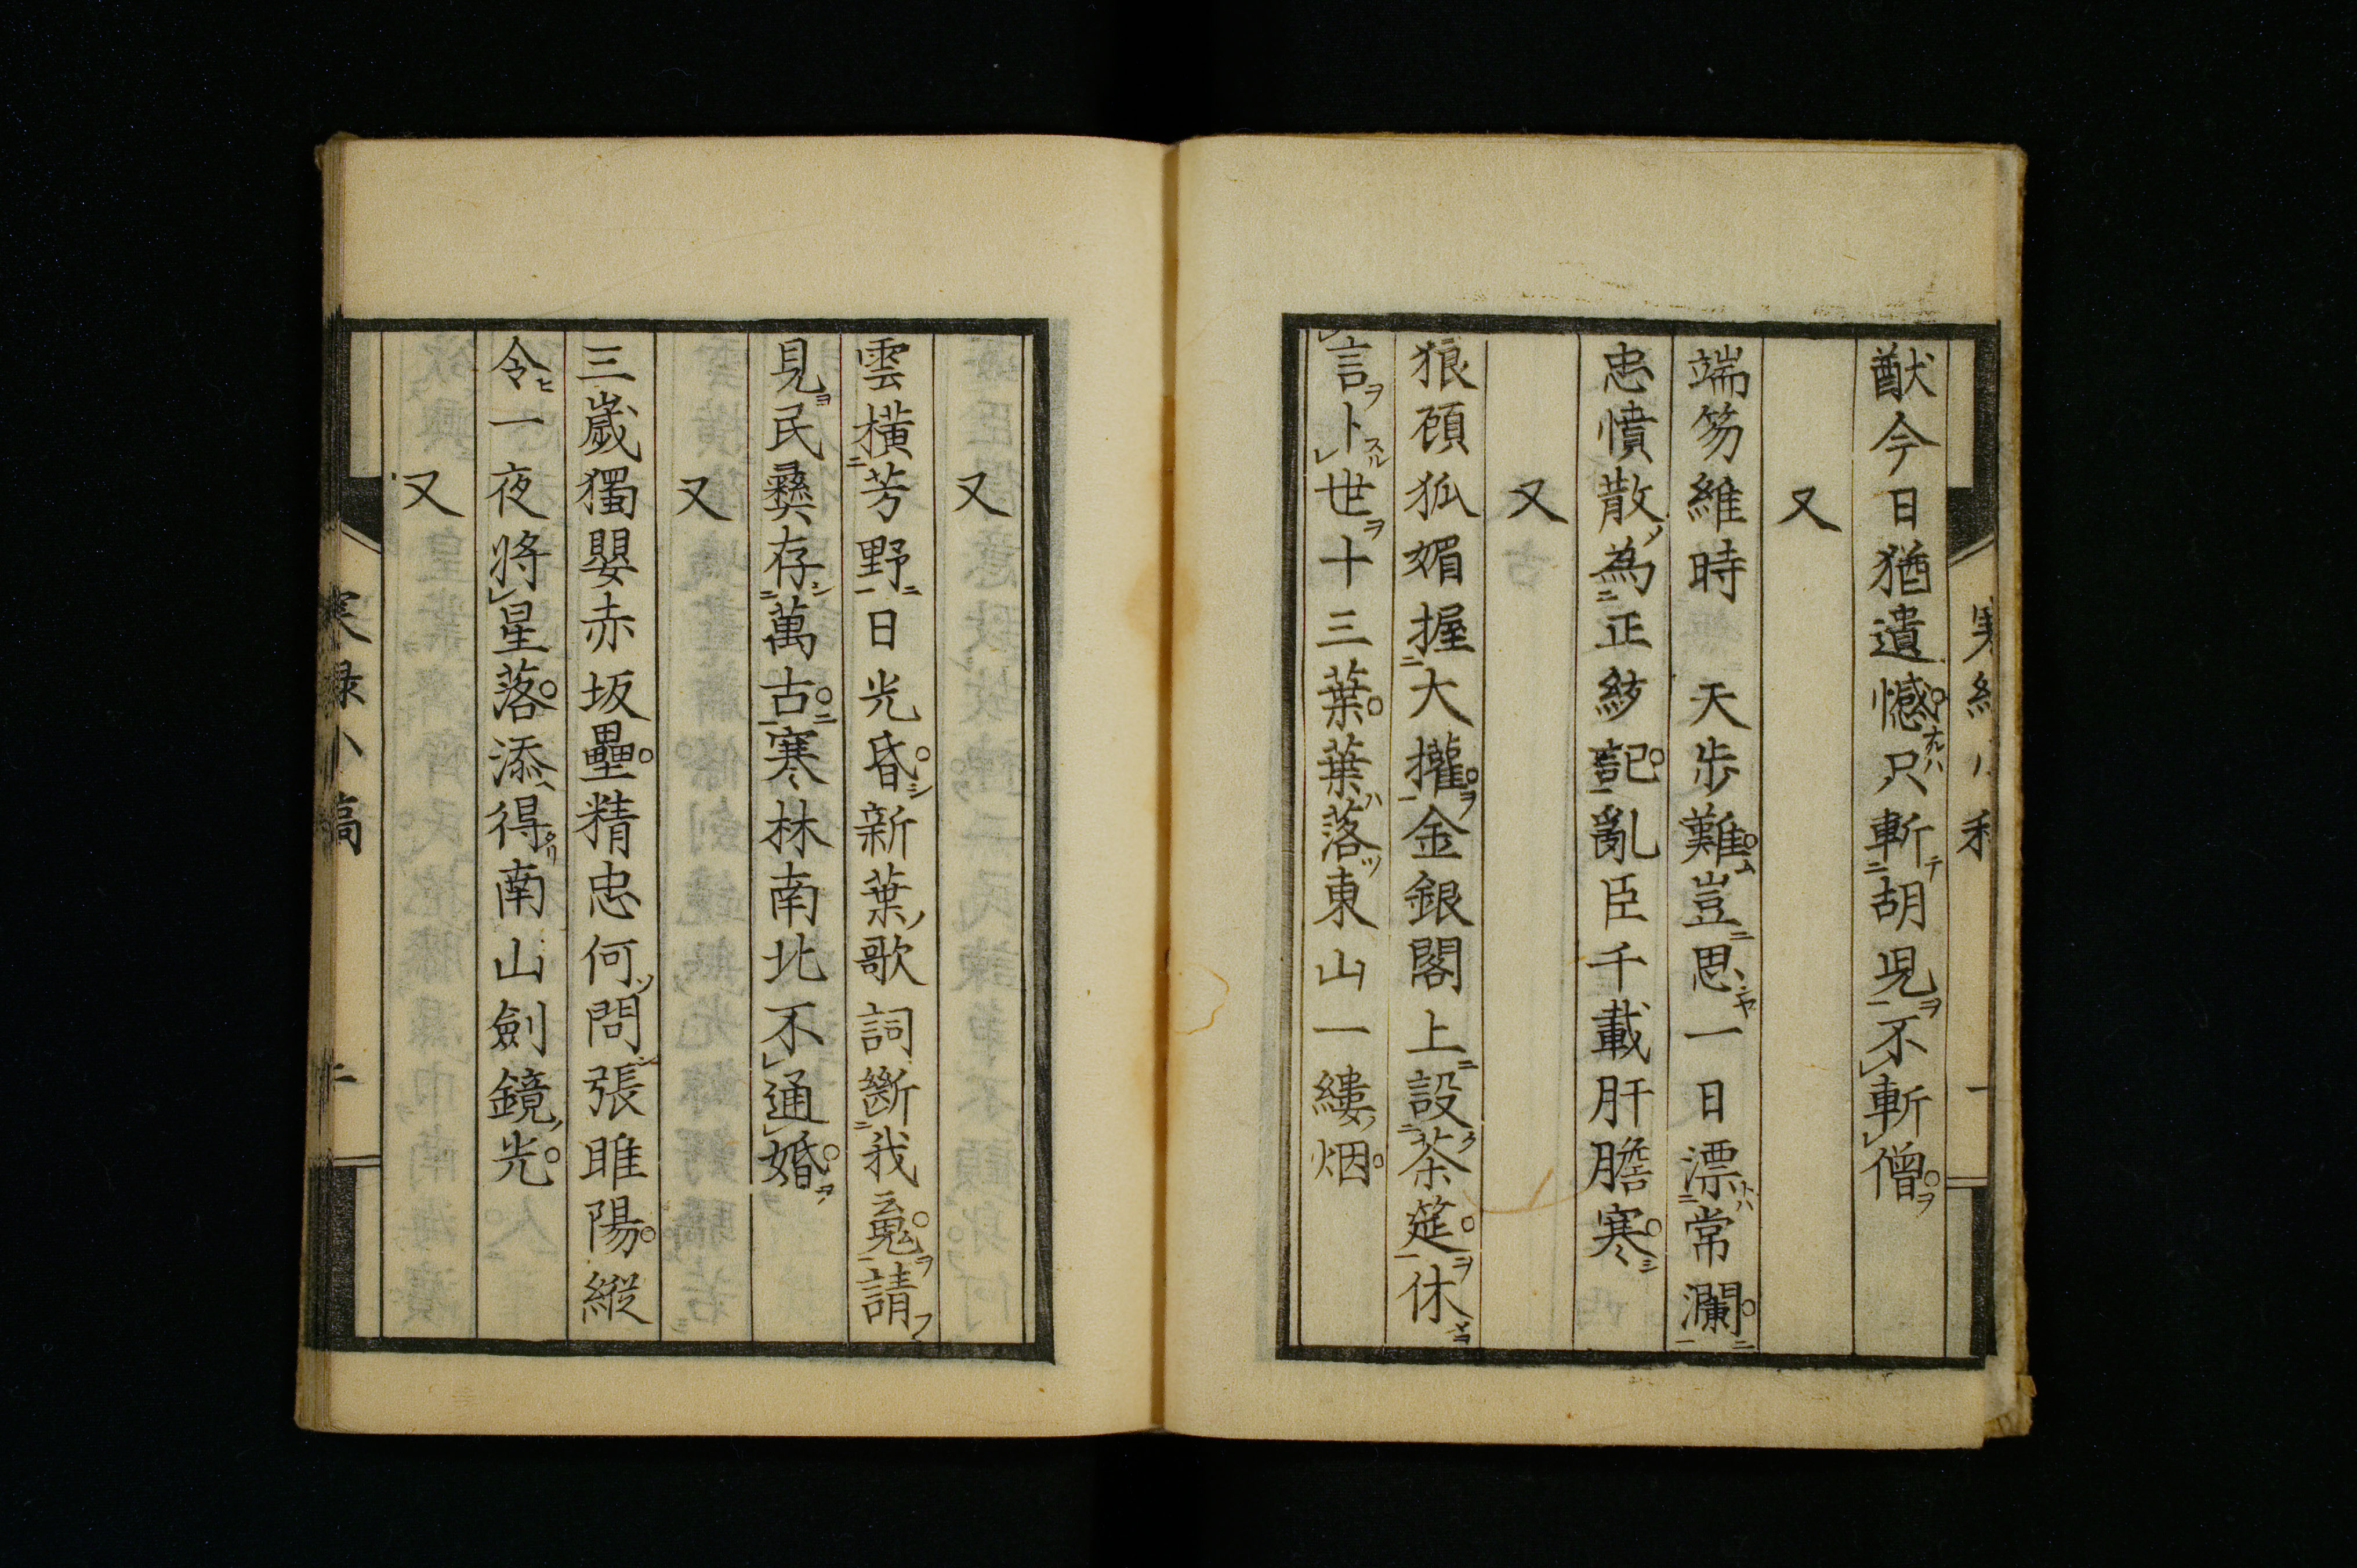 猷今日猶遺憾只斬胡児不斬僧
又
端笏維時　天步難豈思一日漂常瀾
忠憤散為正紡記亂臣千載肝膽寒
又
狼顧狐媚握大權金銀閣上設茶筵休
言卜世十三葉葉落東山一縷烟
又
雲橫芳野日光昏新葉歌詞斷我䰟請
見民彝存萬古寒林南北不通婚
又
三歲獨嬰赤坂壘精忠何問張睢陽縱
令一夜將星落添得南山劍鏡光
又